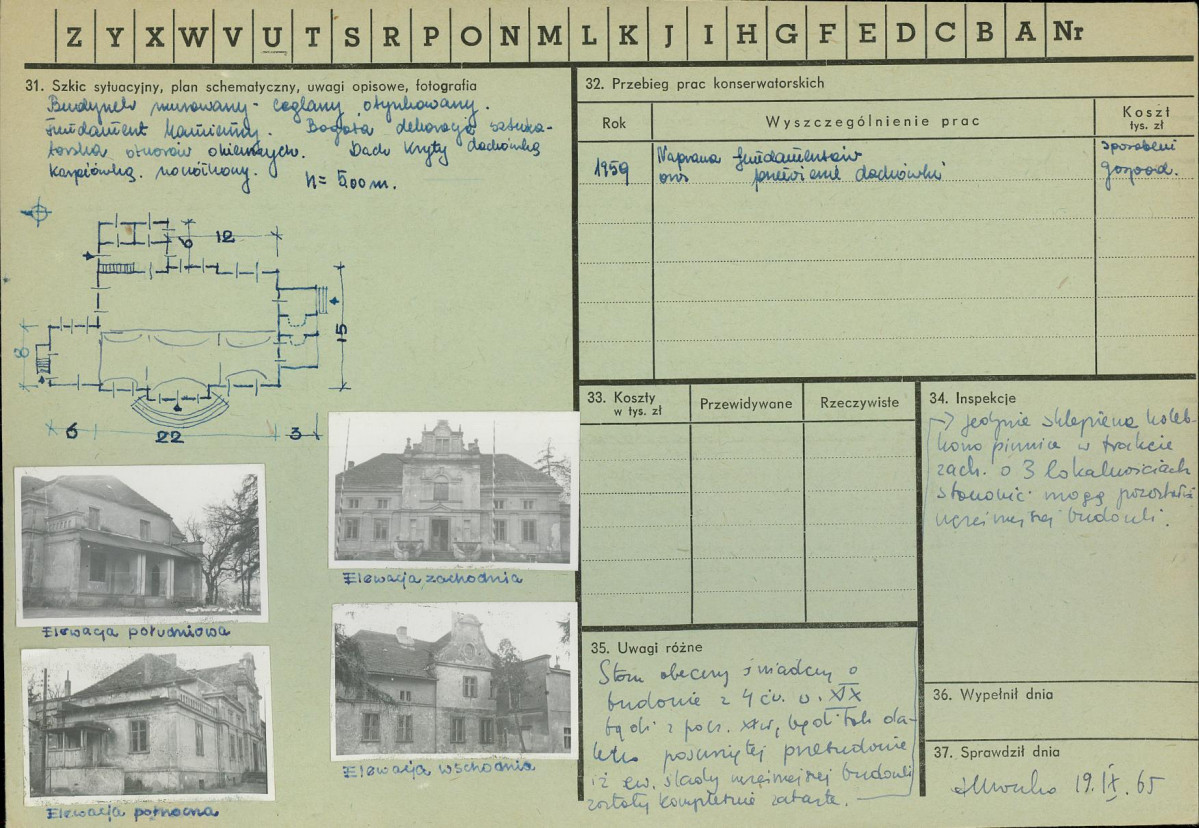 Z Y X W V U T S R P O N M L K J I H G F E D C B A Nr
31. Szkic sytuacyjny, plan schematyczny, uwagi opisowe, fotografia
Budynek murowany - ceglany, otynkowany.
Fundament kamienny. Bogata dekoracja sztuka-
torska otworów okiennych. Dach kryty dachówką
karpiówką.
h = 5,00 m.
6
12
15
8
6
22
3
Elewacja południowa
Elewacja zachodnia
Elewacja północna
Elewacja wschodnia
32. Przebieg prac konserwatorskich
Rok
Wyszczególnienie prac
Koszt
tys. zł
1959
Naprawa fundamentów
oraz dachówki
sposobem
gospod.
33. Koszty
w tys. zł
Przewidywane
Rzeczywiste
34. Inspekcje
Jedynie sklepiona koleb-
kowo piwnica w trakcie
zach. o 3 lokalnościach
stanowić mogą
wcześniejszej budowli.
35. Uwagi różne
Stan obecny świadczy o
budowie z 4 ćw. w. XIX
bądź z pocz. XX w., bądź tak da-
leko posuniętej przebudowie
iż ew. ślady wcześniejszej budowli
zostały kompletnie zatarte.
36. Wypełnił dnia
37. Sprawdził dnia
19.IX.65